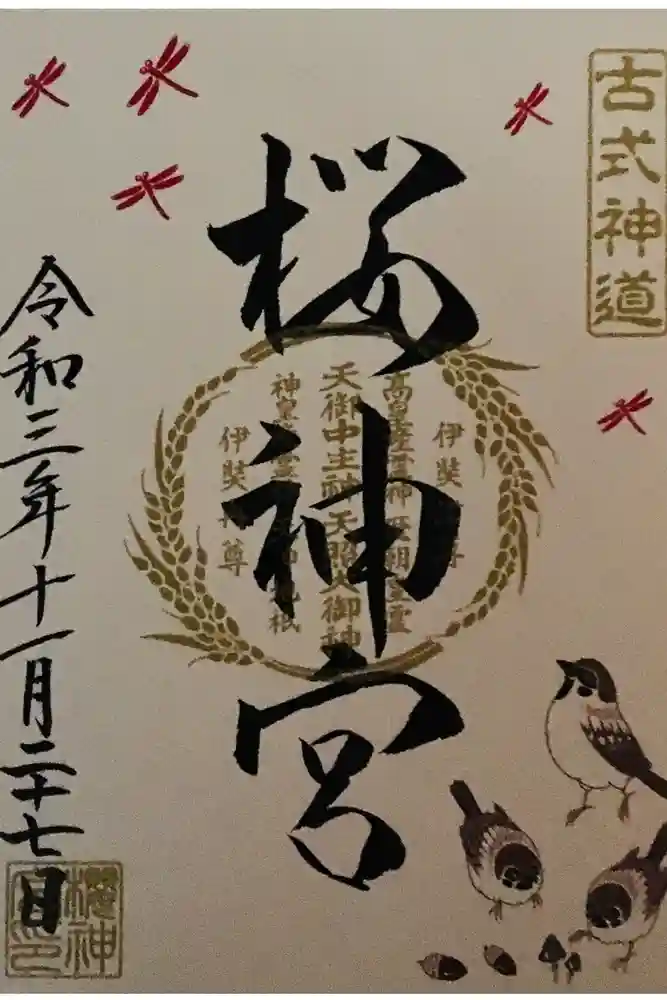 古式神道
桜神宮
伊奘
高皇産霊神歴朝皇霊
天御中主神天照大御神
神皇産霊
地祇
伊奘 尊
令和三年十一月二十七日
櫻神
宮印